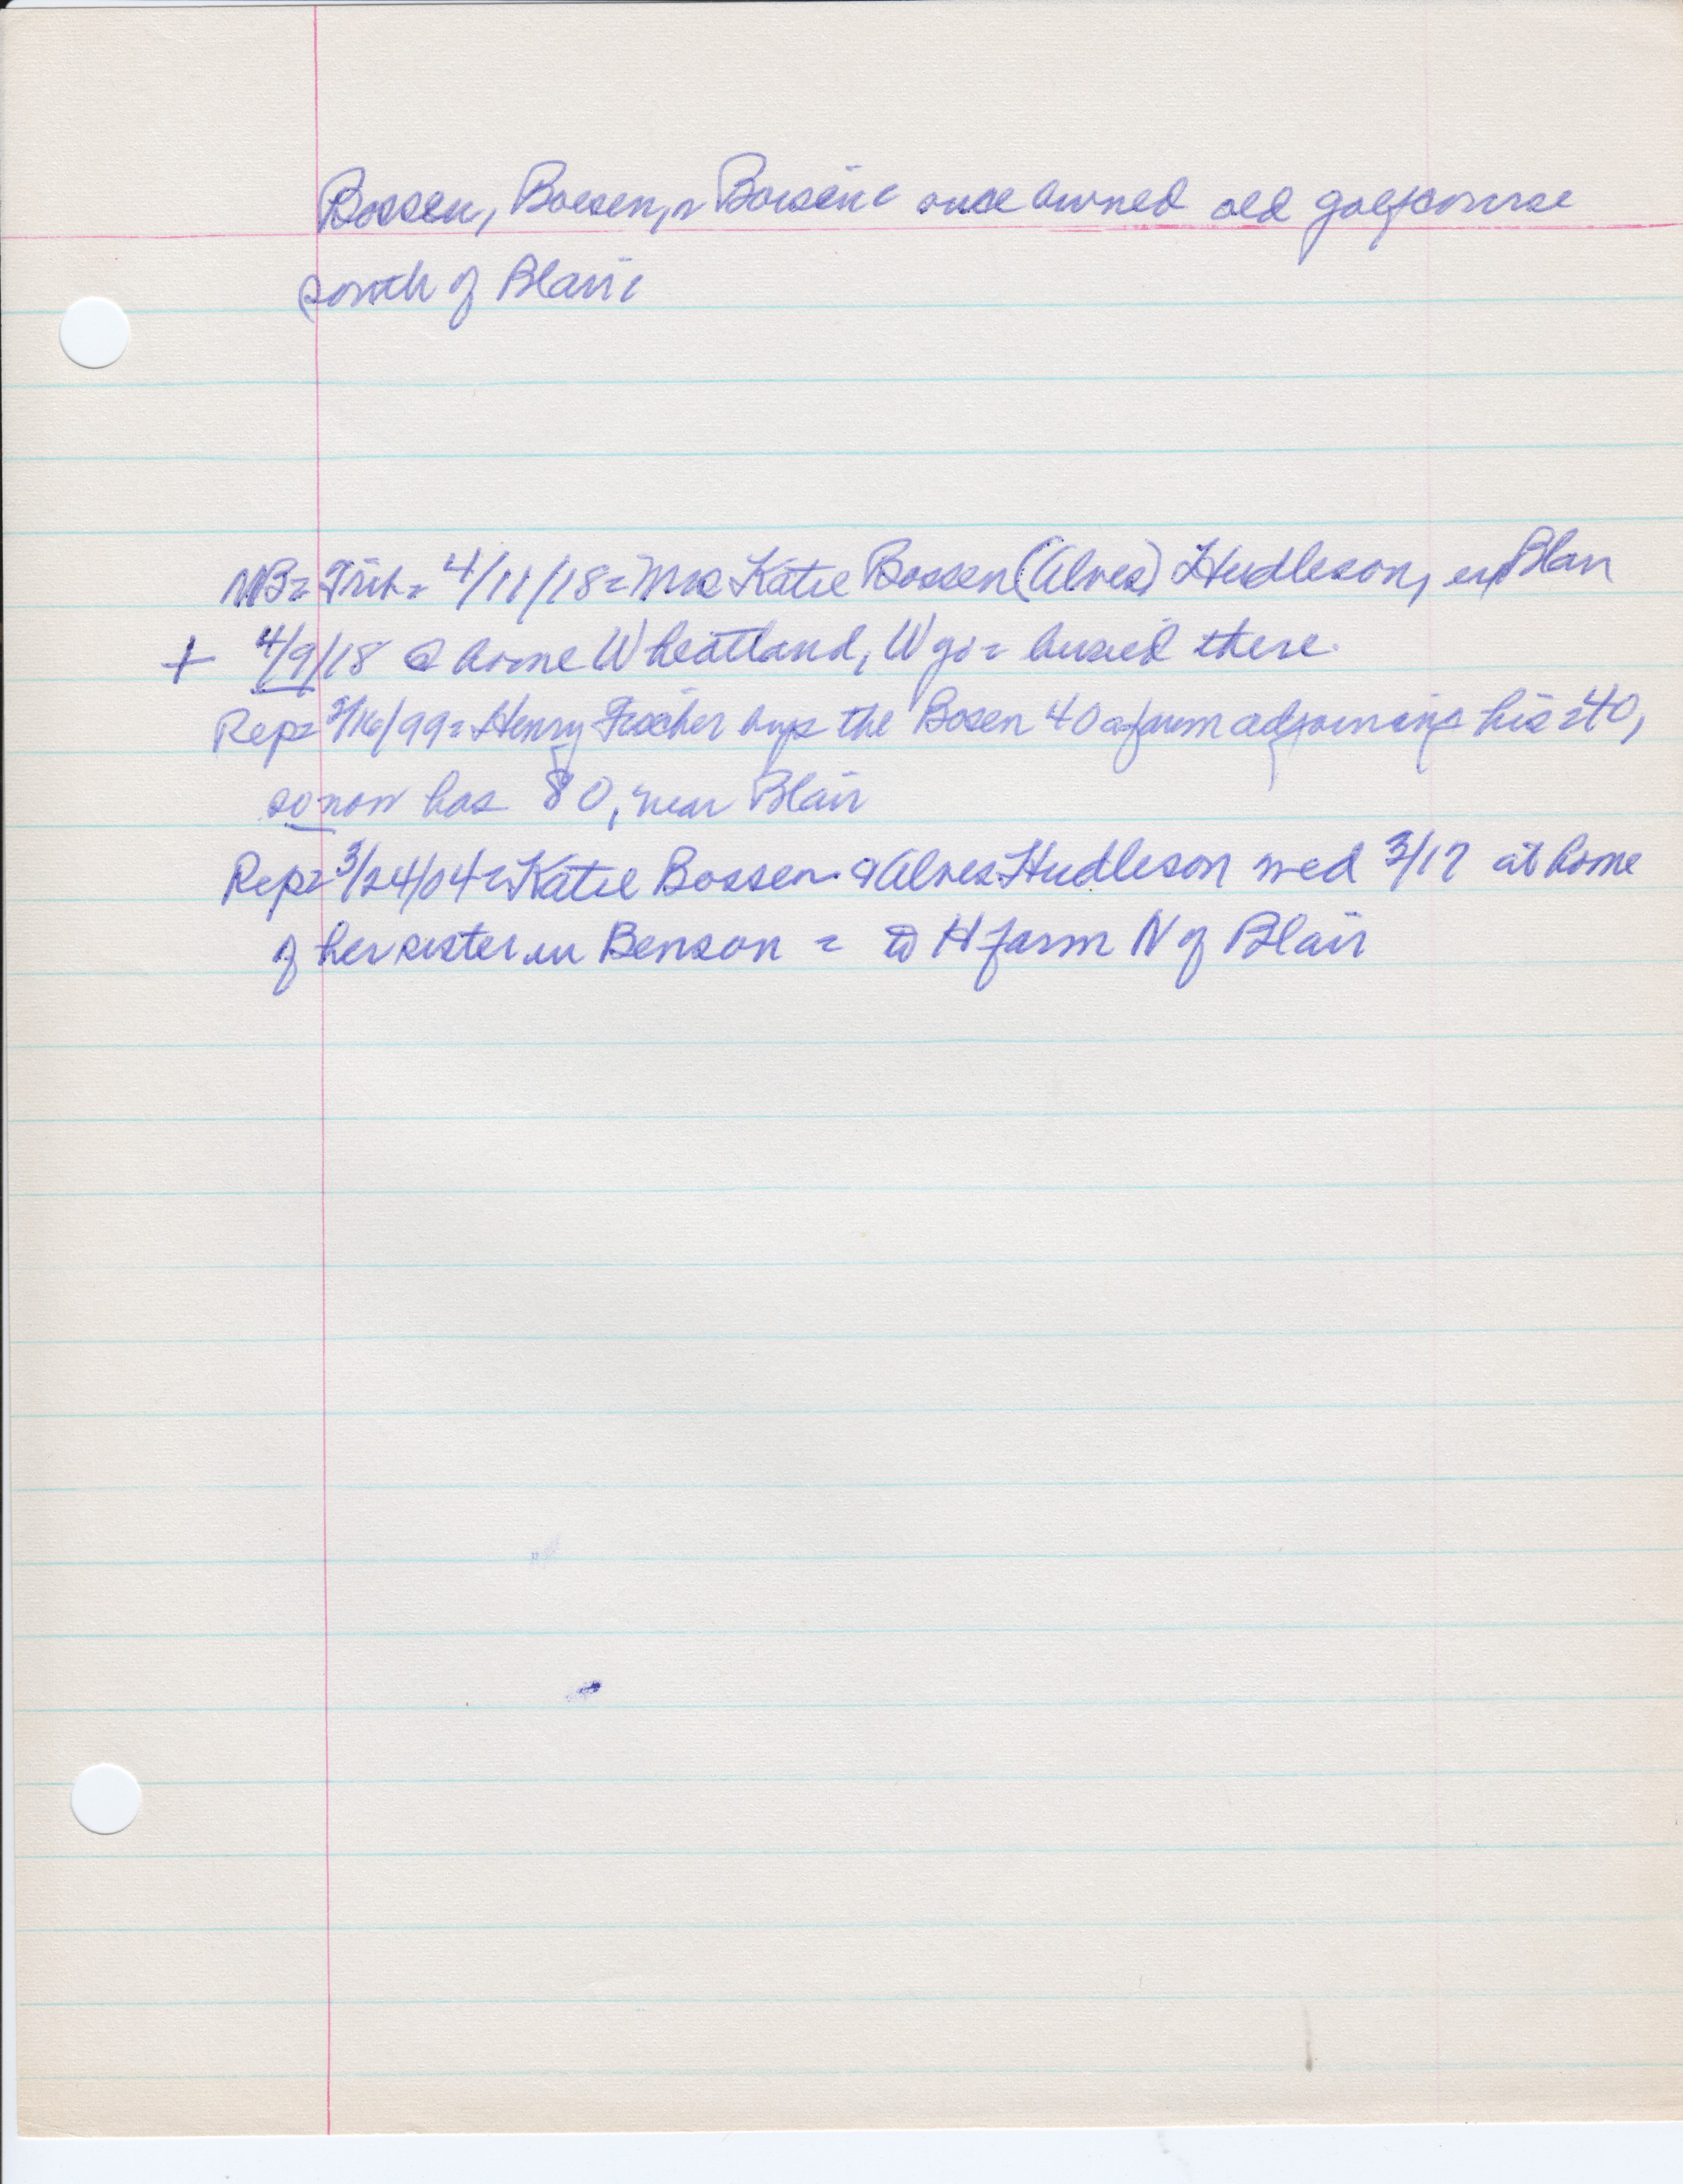 Bossen, Boesen, or Boisen: once owned old golf course
south of Blair:
NB= Trib= 4/11/18= Mrs Katie Bossen (Alves) Hudleson, ex Blair
+ 4/9/18 @ home Wheatland, Wyo= buried there.
Rep= /16/99= Henry Fischer buys the Bosen 40 a farm adjoining his 40,
so now has 80, near Blair
Rep= 3/24/04= Katie Bossen & Alves Hudleson wed 3/17 at home
of her sister in Benson = to H farm N of Blair